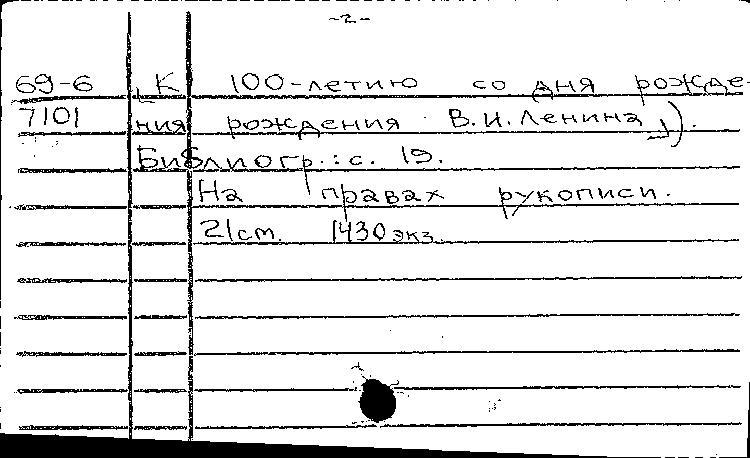 -2-
69-6 [К 100-летию со дня рожде-
7101 ния рождения В.И.Ленина]).
Библиогр.: с. 19.
На правах рукописи.
21см. 1430экз.